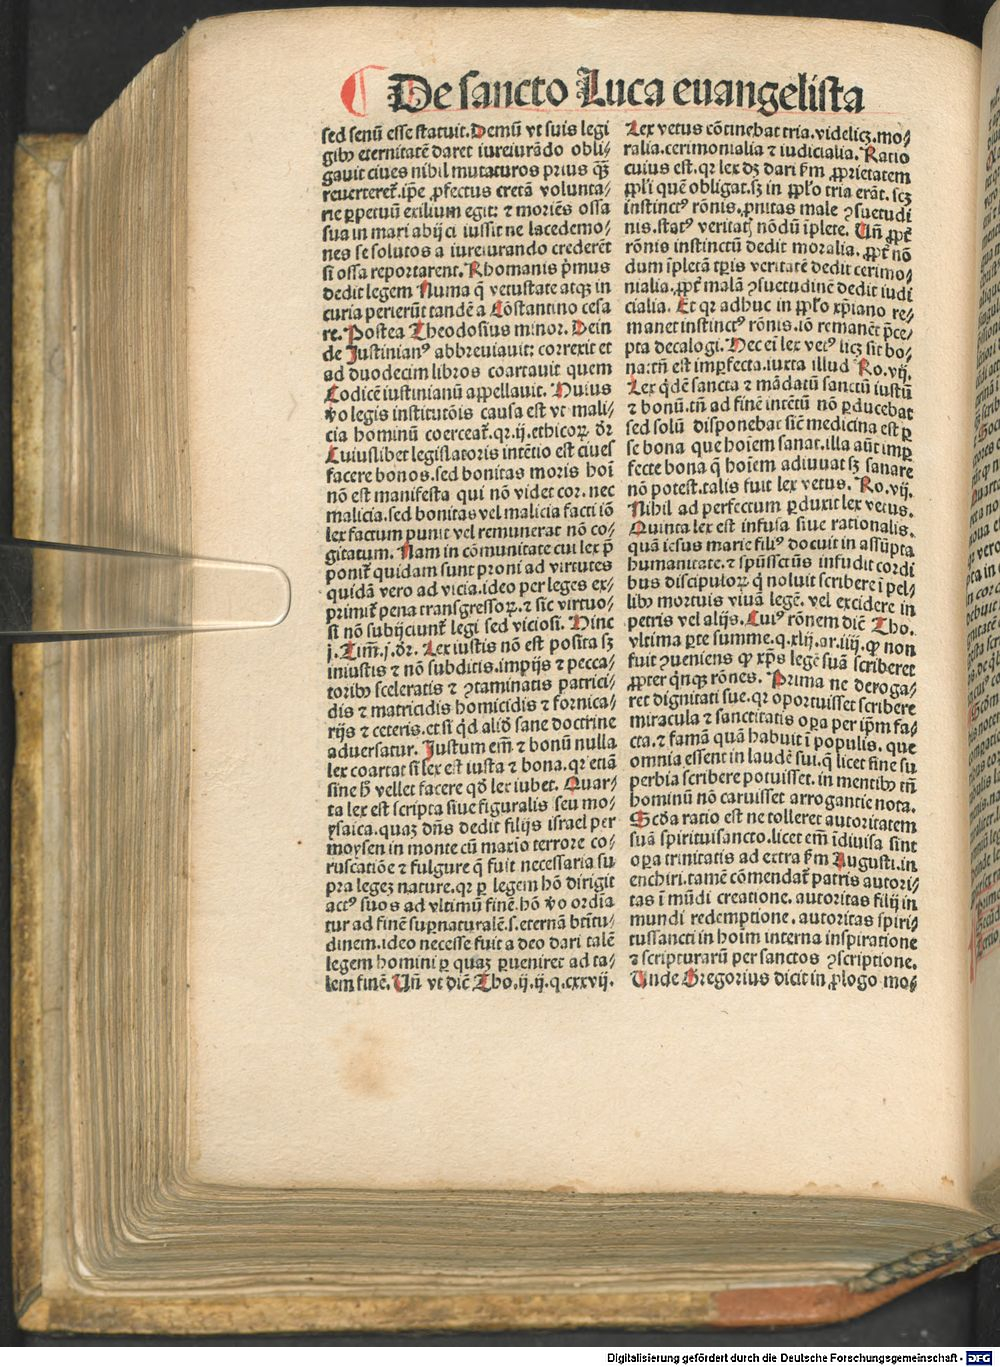 De sancto Luca euangelista
sed senū esse statuit. Demū vt suis legi
gibꝰ eternitatē daret iureiurādo obli⸗
gauit ciues nihil mutaturos prius qꝫ
reuerteret̄. ip̄e ꝓfectus cretā volunta⸗
rie ꝑpetuū exilium egit: ⁊ moriēs ossa
sua in mari abijci iussit ne lacedemo⸗
nes se solutos a iureiurando crederēt
si ossa reportarent. Rhomanis p̄mus
dedit legem Numa q̄ vetustate atqꝫ in
curia perierūt tandē a Cōstantino cesa
re. Postea Theodosius minor. Dein
de Justinianꝰ abbreuiauit: correxit et
ad duodecim libros coartauit quem
Codicē iustinianū appellauit. Huius
v̄o legis institutōis causa est vt mali⸗
cia hominū coerceat̄. qr. ij. ethicoꝝ dr̄
Cuiuslibet legislatoris intētio est ciues
facere bonos. sed bonitas moris hoī
nō est manifesta qui nō videt cor. nec
malicia. sed bonitas vel malicia facti iō
lex factum punit vel remunerat nō co⸗
gitatum. Nam in cōmunitate cui lex p̄
ponit̄ quidam sunt proni ad virtutes
quidā vero ad vicia. ideo per leges ex⸗
primit̄ pena transgressoꝝ. ⁊ sic virtuo⸗
si nō subijciunt̄ legi sed viciosi. Hinc
j. Tim̄. j. dr̄. Lex iustis nō est posita sꝫ
iniustis ⁊ nō subditis. impijs ⁊ pecca⸗
toribꝰ sceleratis ⁊ ꝯtaminatis patrici⸗
dis ⁊ matricidis homicidis ⁊ fornica⸗
rijs ⁊ ceteris. et si q̄d aliō sane doctrine
aduersatur. Justum em̄ ⁊ bonū nulla
lex coartat si lex est iusta ⁊ bona. qr etiā
sine h̄ vellet facere qō lex iubet. Quar⸗
ta lex est scripta siue figuralis seu mo⸗
ysaica. quaꝫ dn̄s dedit filijs israel per
moysen in monte cū maxīo terrore co⸗
ruscatiōe ⁊ fulgure q̄ fuit necessaria su
pra legeꝫ nature. qr ꝑ legem hō dirigit
actꝰ suos ad vltimū finē. hō v̄o ordīa
tur ad finē suꝑnaturalē. s. eternā btītu⸗
dinem. ideo necesse fuit a deo dari talē
legem homini ꝑ quaꝫ ꝑueniret ad ta⸗
lem finē. Un̄ vt dic̄ Tho. ij. ij. q. cxxvij.
Lex vetus cōtinebat tria. videlicꝫ. mo⸗
ralia. cerimonialia ⁊ iudicialia. Ratio
cuius est. qr lex dꝫ dari ẜm ꝓprietatem
ppl̄i quē obligat. sꝫ in ppl̄o tria erāt. scꝫ
instinctꝰ rōnis. ꝓnitas male ꝯsuetudi
nis. statꝰ veritatꝭ nōdū īplete. Un̄ ꝓpt̄
rōnis instinctū dedit moralia. ꝓpt̄ nō
dum īpletā tꝑis veritatē dedit cerimo⸗
nialia. ꝓpt̄ malā ꝯsuetudinē dedit iudi
cialia. Et qr adhuc in ppl̄o xp̄iano re⸗
manet instinctꝰ rōnis. iō remanēt p̄ce⸗
pta decalogi. Hec ei lex vetꝰ licꝫ sit bo⸗
na: tn̄ est imꝑfecta. iuxta illud Ro. vij.
Lex q̄dē sancta ⁊ mādatū sanctū iustū
⁊ bonū. tn̄ ad finē intētū nō ꝑducebat
sed solū disponebat sic̄ medicina est ꝑ
se bona que hoīem sanat. illa aūt imꝑ
fecte bona q̄ hoīem adiuuat sꝫ sanare
nō potest. talis fuit lex vetus. Ro. vij.
Nihil ad perfectum ꝑduxit lex vetus.
Quinta lex est infusa siue rationalis.
quā iesus marie filiꝰ docuit in assūpta
humanitate. ⁊ spūssctūs infudit cordi
bus discipuloꝝ q̄ noluit scribere ī pel⸗
libꝰ mortuis viuā legē. vel excidere in
petris vel alijs. Cuiꝰ rōnem dic̄ Tho.
vltima ꝑte summe. q. xlij. ar. iiij. ꝙ non
fuit ꝯueniens ꝙ xp̄s legē suā scriberet
ꝓpter q̄nqꝫ rōnes. Prima ne deroga⸗
ret dignitati sue. qr oportuisset scribere
miracula ⁊ sanctitatis oꝑa per ip̄m fa⸗
cta. ⁊ famā quā habuit ī populis. que
omnia essent in laudē sui. q̄ licet sine su
perbia scribere potuisset. in mentibꝰ tn̄
hominū nō caruisset arrogantie nota.
Scd̄a ratio est ne tolleret autoritatem
suā spirituisancto. licet em̄ īdiuisa sint
oꝑa trinitatis ad extra ẜm Augusti. in
enchiri. tamē cōmendat̄ patris autori⸗
tas ī mūdi creatione. autoritas filij in
mundi redemptione. autoritas spiri⸗
tussancti in hoīm interna inspiratione
⁊ scripturarū per sanctos ꝯscriptione.
Unde Gregorius dicit in ꝓlogo mo⸗
Digitalisierung gefördert durch die Deutsche Forschungsgemeinschaft - DFG